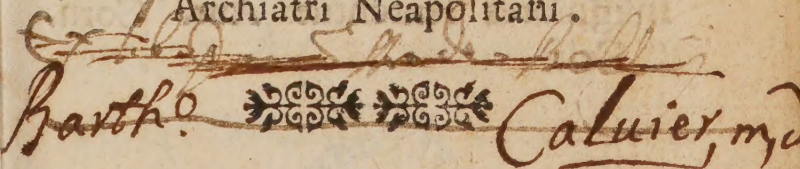 Archiatri Neapolitani.
Ex
Barth.o Caluier, m,d